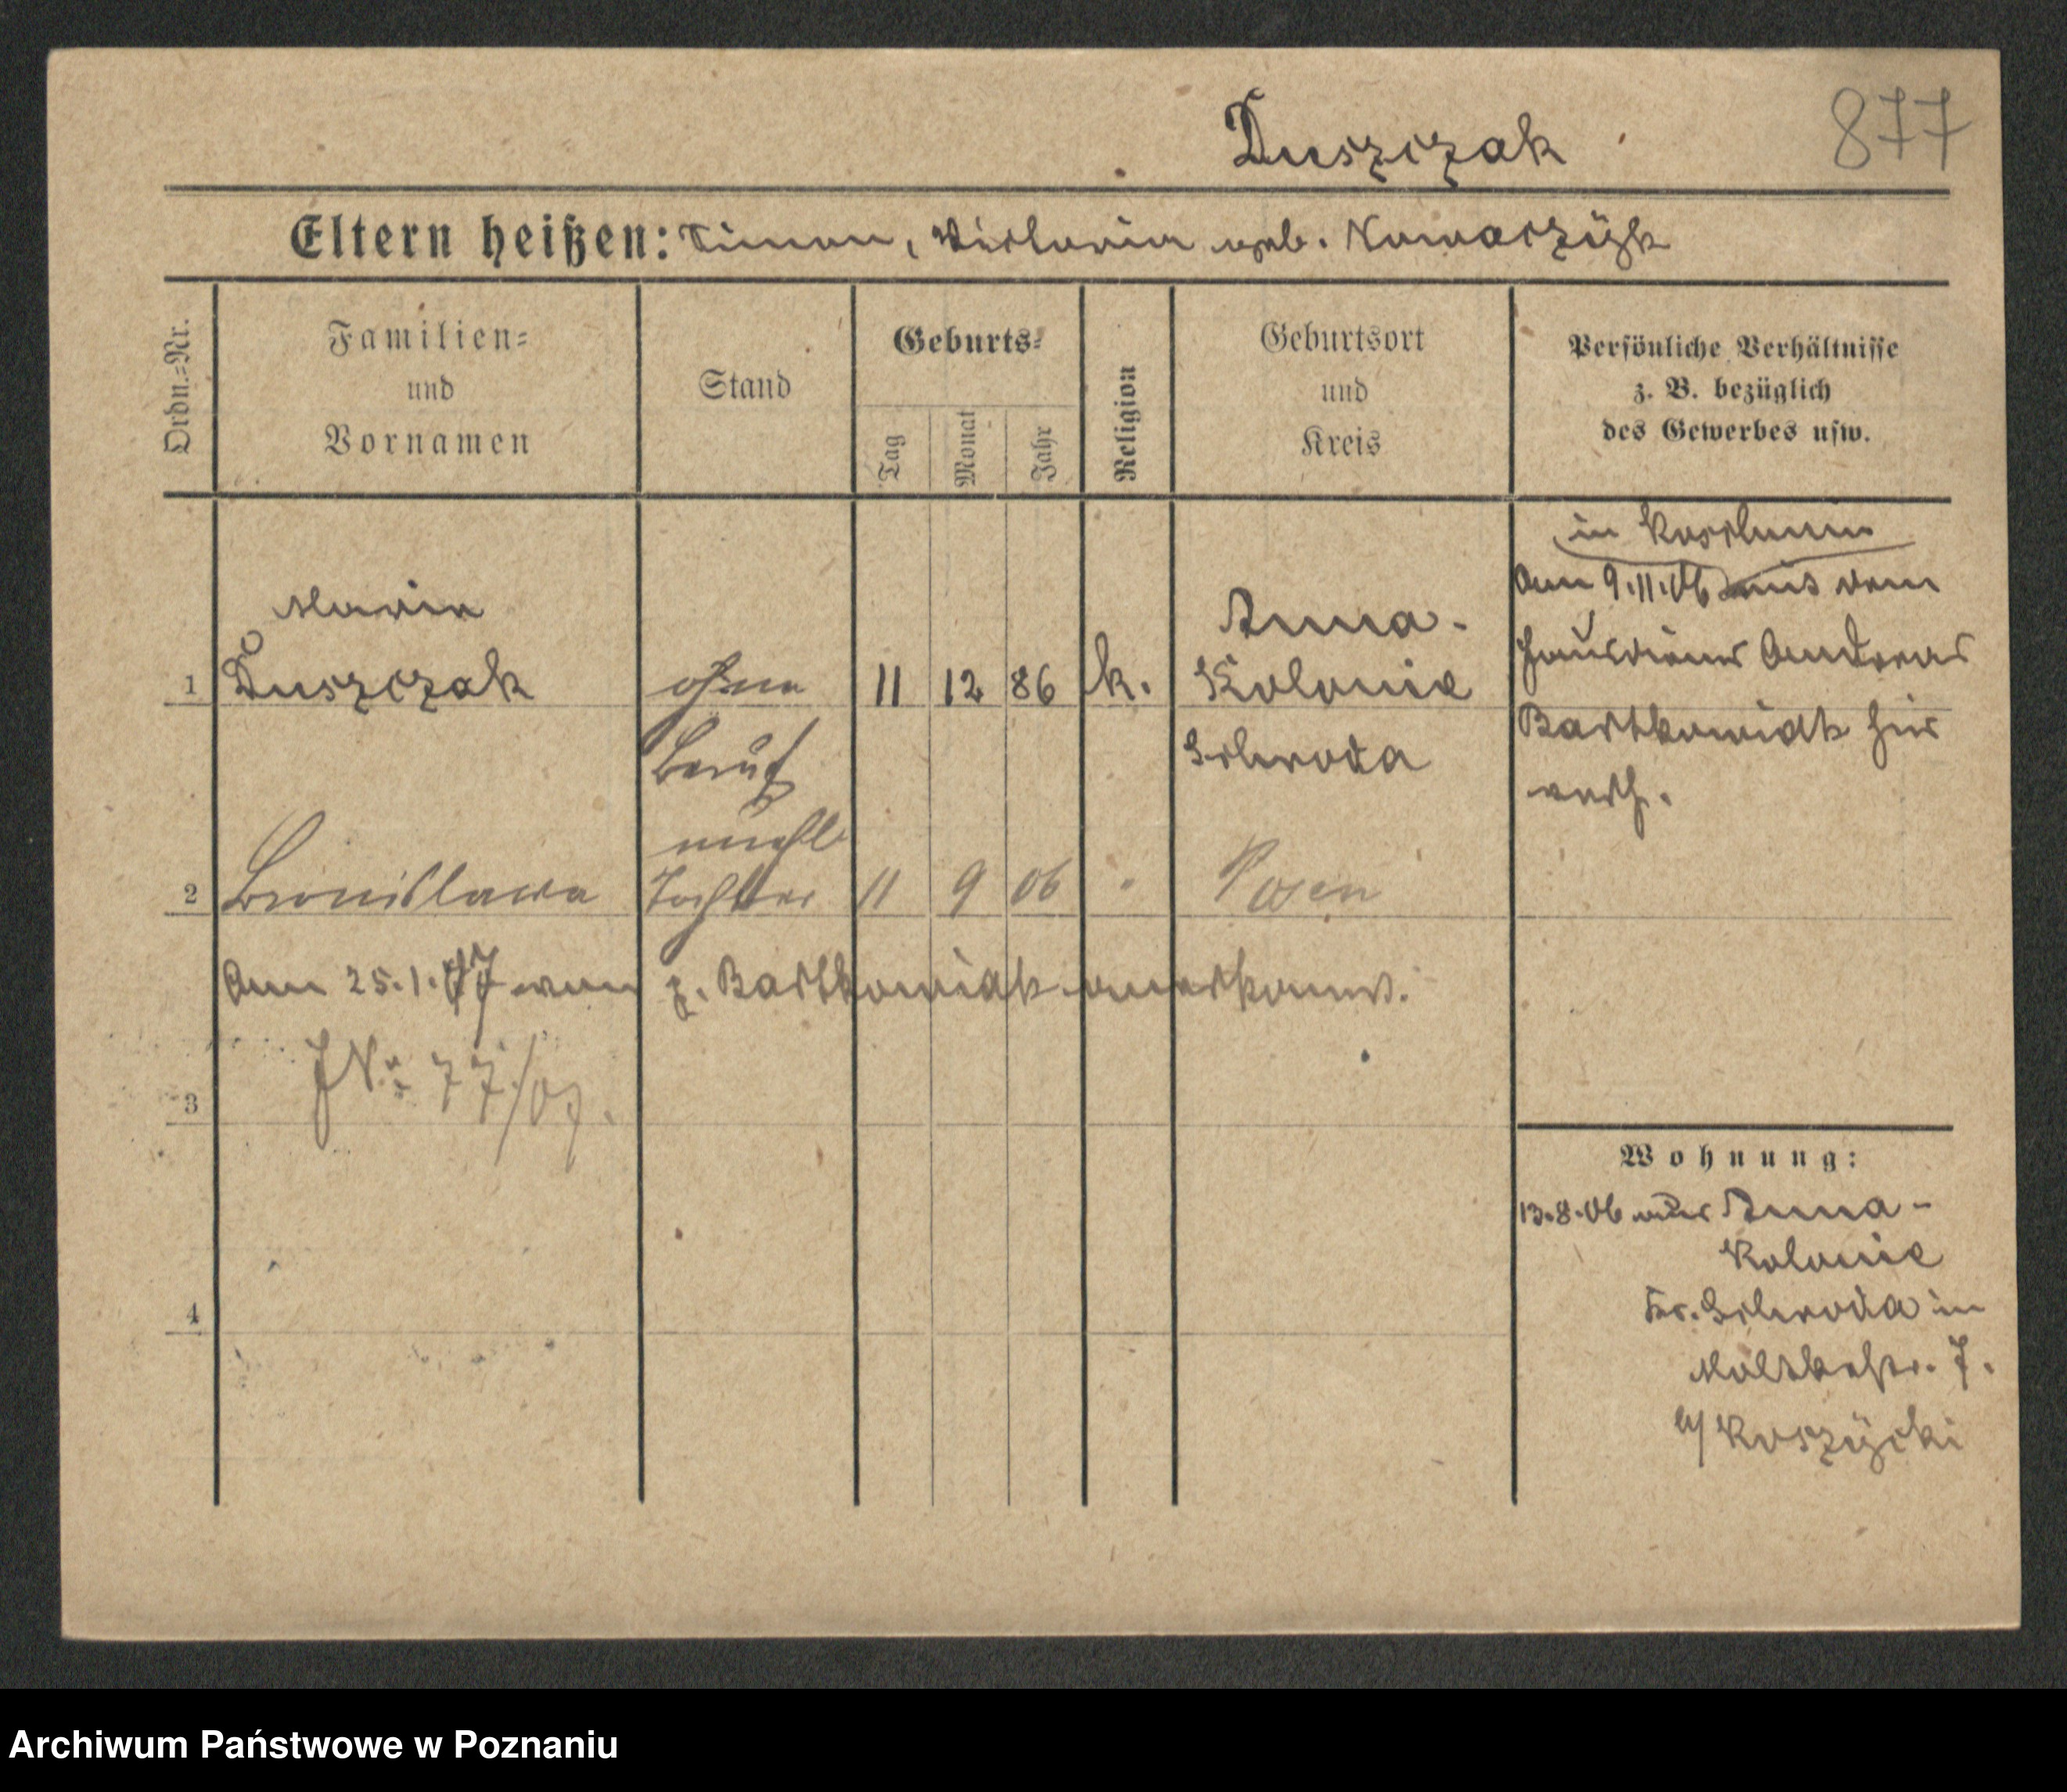 Duszczak
877
Eltern heißen: Simon, Victoria geb. Nowaczÿk
Ordn.=Nr.
Familien=
und
Vornamen
Stand
Geburts=
Tag
Monat
Jahr
Religion
Geburtsort
und
Kreis
Persönliche Verhältnisse
z. B. bezüglich
des Gewerbes usw.
1
Maria
Duszczak
ohne
Beruf
11
12
86
k.
Anna-
Kolonie
Schroda
in
Am 9.11.06 mit dem
Hausdiener Andreas
Bartkowiak hier
verh.
2
Bronislawa
unehl
Tochter
11
9
06
"
Posen
Am 25.1.07 von p. Bartkowiak anerkannt.
JN: 77/07.
3
4
Wohnung:
13.8.06 aus Anna-
Kolonie
Kr. Schroda in
Moltkestr. 7.
b/ Koszÿcki
Archiwum Państwowe w Poznaniu